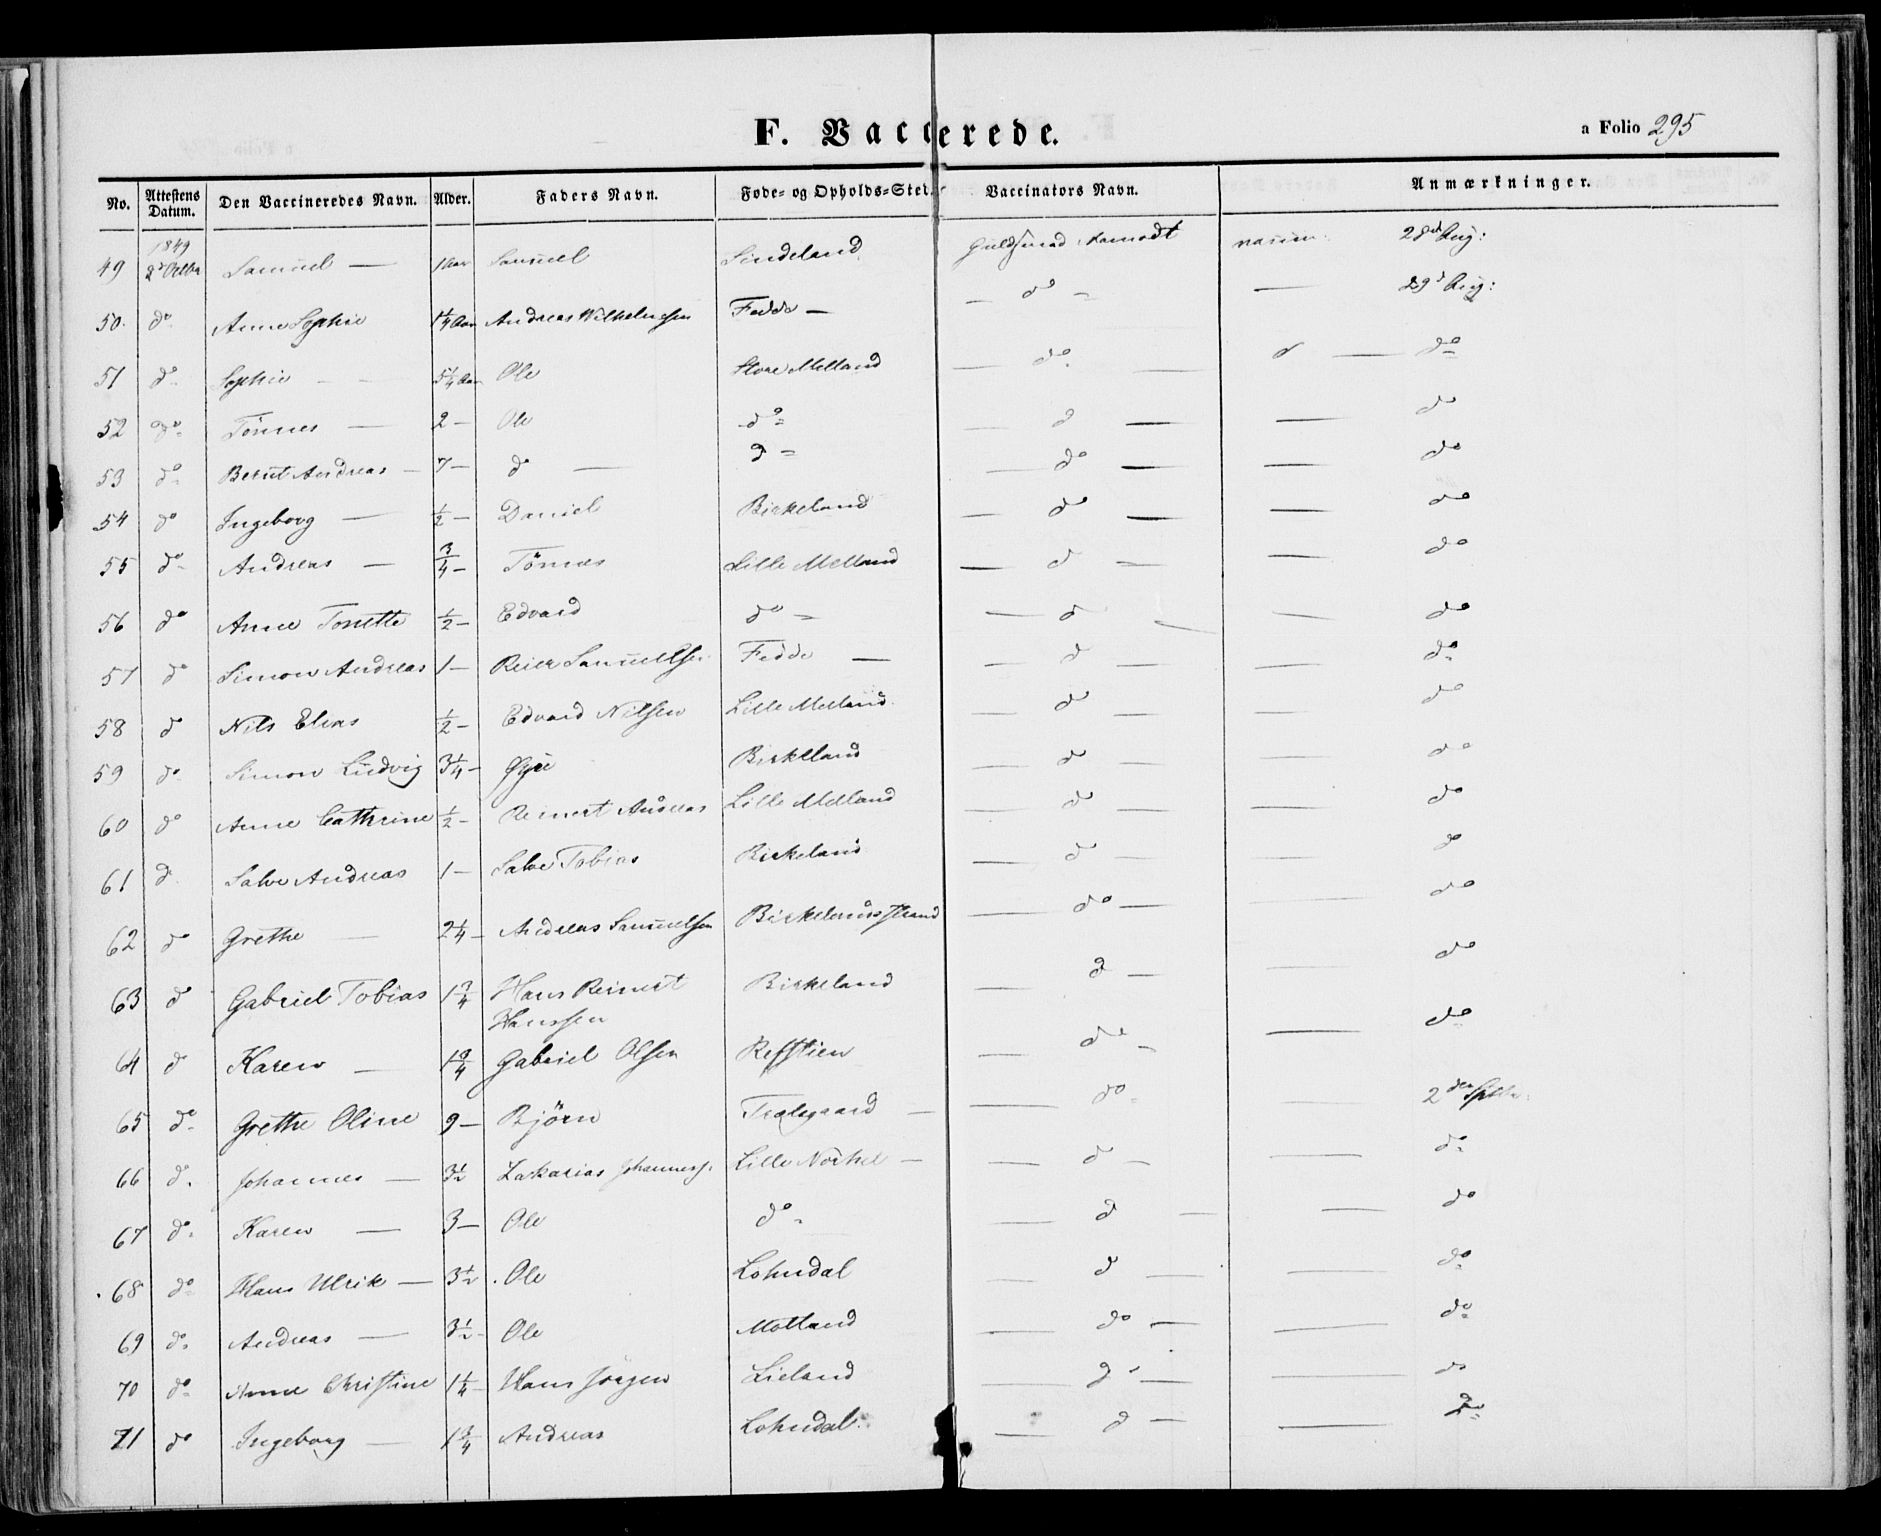 F. Vaccinerede.
a Folio 295
No. Attestens Datum. Den Vaccineredes Navn. Alder. Faders Navn. Føde- og Opholds-Sted. Vaccinators Navn. Anmærkninger.
1849
49 2d Octbr Samuel — 1 Aar Samuel Sindeland Guldsmed vaccin: 28d Aug:
50. do Anne Sophie 1¼ Aar Andreas Wilhelmsen Fedde — — do — — 29d Aug:
51 do Sophie — 5¼ Aar Ole Store Melland — do — d — do
52 do Tönnes — 2 — Ole do — d — — do
53 do Bernt Andreas — 7 — d — d — — do — — do
54 do Ingeborg — ½ — Daniel Birkeland — do — — do
55 do Andreas — ¾ — Tönnes Lille Melland — d — — do
56 do Anne Tonette ½ — Edvard do — — d — — do
57 do Simon Andreas 1 — Reier Samuelsen Fedde — — d — — do
58 d Nils Elias ½ — Edvard Nilsen Lille Melland — do — — do
59 do Simon Ludvig 3¼ — Gye Birkeland — do — — do
60 do Anne Cathrine ½ — Reinert Andreas Lille Melland — do — — do
61 d Salve Andreas 1 — Salve Tobias Birkeland — do — — do
62 do Grethe — 2¼ — Andreas Samuelsen Birkelandsstrand — do — — do
63 d Gabriel Tobias 1¾ Hans Reinert Birkeland — d — — do
Hanssen
64 d Karen — 1¾ Gabriel Olsen Refstien — do — — do
65 do Grethe Oline 9 — Bjørn Trælsgaard — — do — 2den Sptbr:
66 d. Johannes — 3½ Zakarias Johanness. Lille — — d — — do
67 do Karen — 3 — Ole do — d — — do
68 do Hans Ulrik — 3½ Ole Lohndal — d — — do
69 do Andreas — 3½ — Ole Molland — do — — do
70 do Anne Christine 1¼ — Hans Jörgen Lieland d — — do
71 do Ingeborg — 1¾ Andreas Lohndal — d — — do